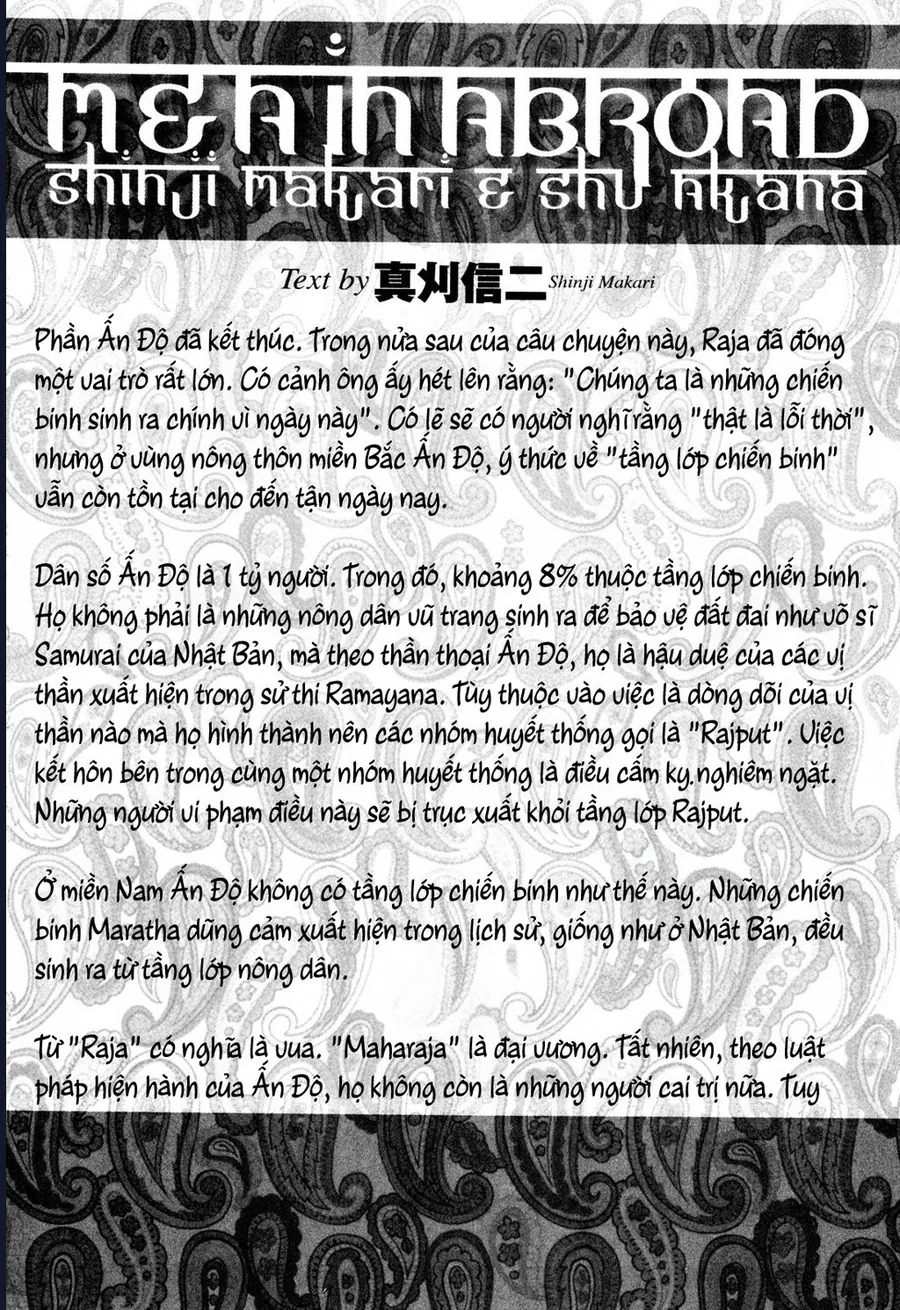 MEN IN ABROAD
Shinji Makari & Shu Akana
Text by 真刈信二 Shinji Makari
Phần Ấn Độ đã kết thúc. Trong nửa sau của câu chuyện này, Raja đã đóng
một vai trò rất lớn. Có cảnh ông ấy hét lên rằng: "Chúng ta là những chiến
binh sinh ra chính vì ngày này". Có lẽ sẽ có người nghĩ rằng "thật là lỗi thời",
nhưng ở vùng nông thôn miền Bắc Ấn Độ, ý thức về "tầng lớp chiến binh"
vẫn còn tồn tại cho đến tận ngày nay.
Dân số Ấn Độ là 1 tỷ người. Trong đó, khoảng 8% thuộc tầng lớp chiến binh.
Họ không phải là những nông dân vũ trang sinh ra để bảo vệ đất đai như võ sĩ
Samurai của Nhật Bản, mà theo thần thoại Ấn Độ, họ là hậu duệ của các vị
thần xuất hiện trong sử thi Ramayana. Tùy thuộc vào việc là dòng dõi của vị
thần nào mà họ hình thành nên các nhóm huyết thống gọi là "Rajput". Việc
kết hôn bên trong cùng một nhóm huyết thống là điều cấm kỵ nghiêm ngặt.
Những người vi phạm điều này sẽ bị trục xuất khỏi tầng lớp Rajput.
Ở miền Nam Ấn Độ không có tầng lớp chiến binh như thế này. Những chiến
binh Maratha dũng cảm xuất hiện trong lịch sử, giống như ở Nhật Bản, đều
sinh ra từ tầng lớp nông dân.
Từ "Raja" có nghĩa là vua. "Maharaja" là đại vương. Tất nhiên, theo luật
pháp hiện hành của Ấn Độ, họ không còn là những người cai trị nữa. Tuy